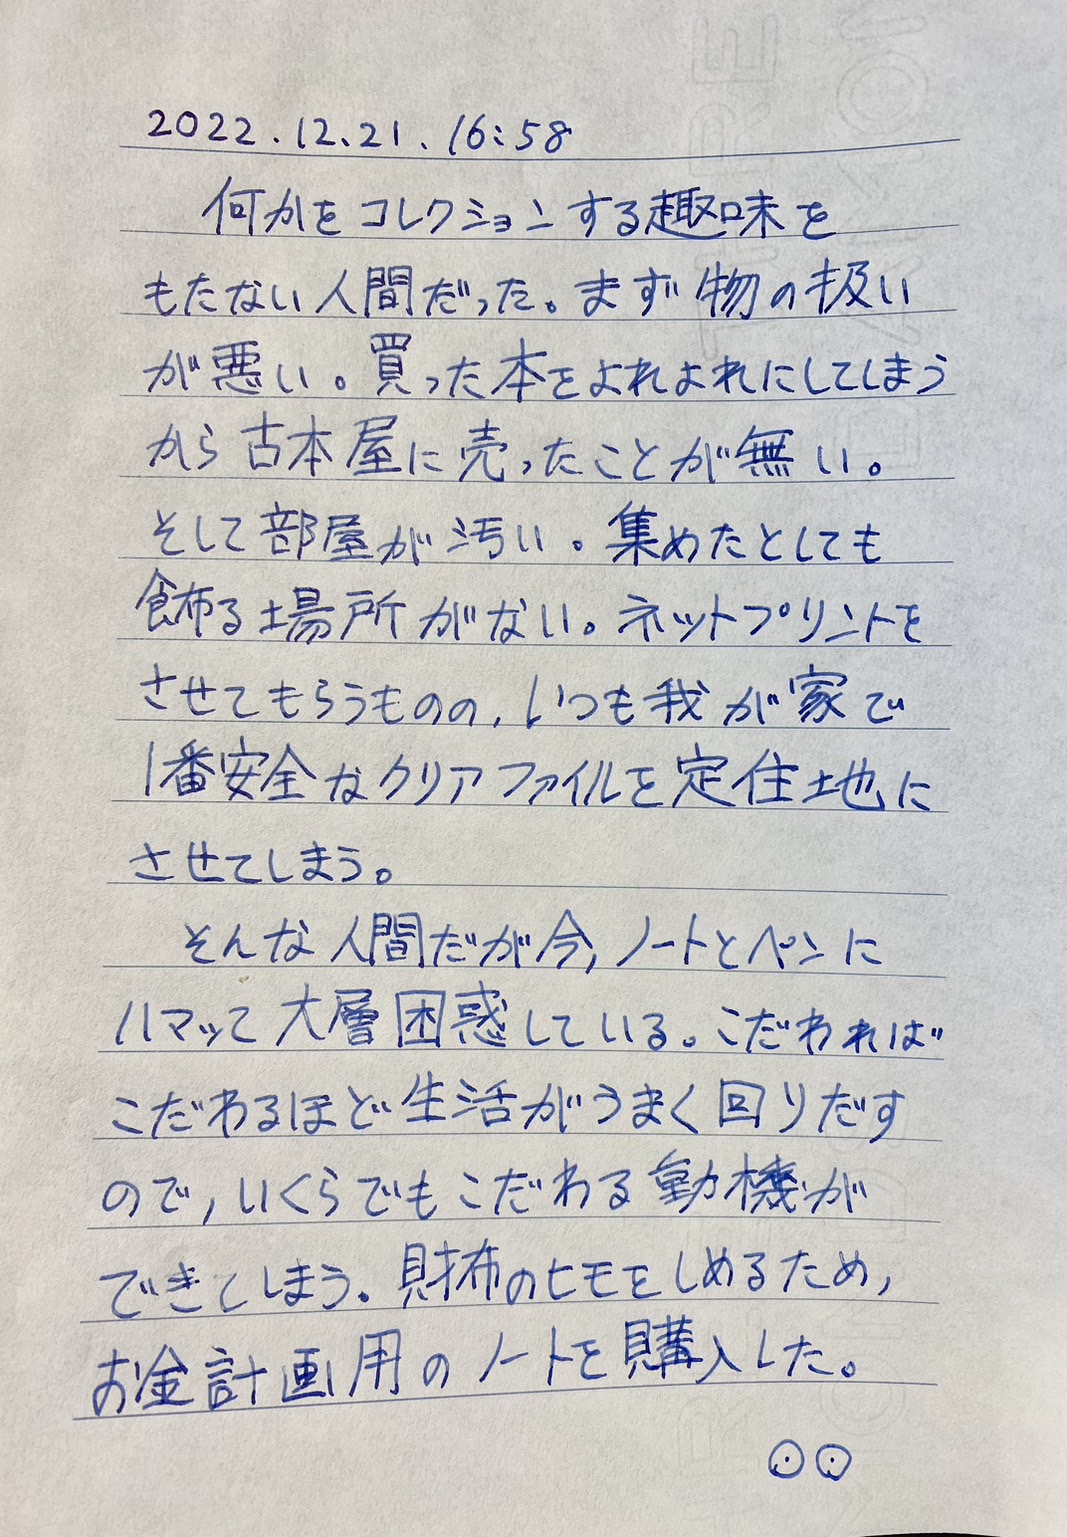 2022.12.21.16:58
何かをコレクションする趣味を
もたない人間だった。まず物の扱い
が悪い。買った本をよれよれにしてしまう
から古本屋に売ったことが無い。
そして部屋が汚い。集めたとしても
飾る場所がない。ネットプリントを
させてもらうものの,いつも我が家で
1番安全なクリアファイルを定住地に
させてしまう。
そんな人間だが今,ノートとペンに
ハマって大層困惑している。こだわれば
こだわるほど生活がうまく回りだす
ので,いくらでもこだわる動機が
できてしまう。財布のヒモをしめるため,
お金計画用のノートを購入した。